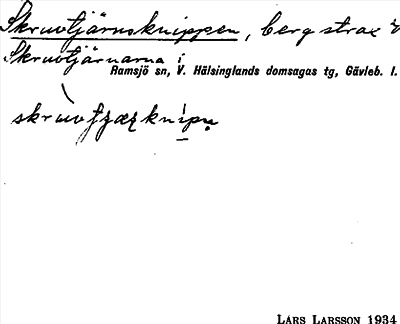 Skruvtjärnsknippen, berg strax v
Skruvtjärnarna i
Ramsjö sn, V. Hälsinglands domsagas tg, Gävleb. l.
LARS LARSSON 1934